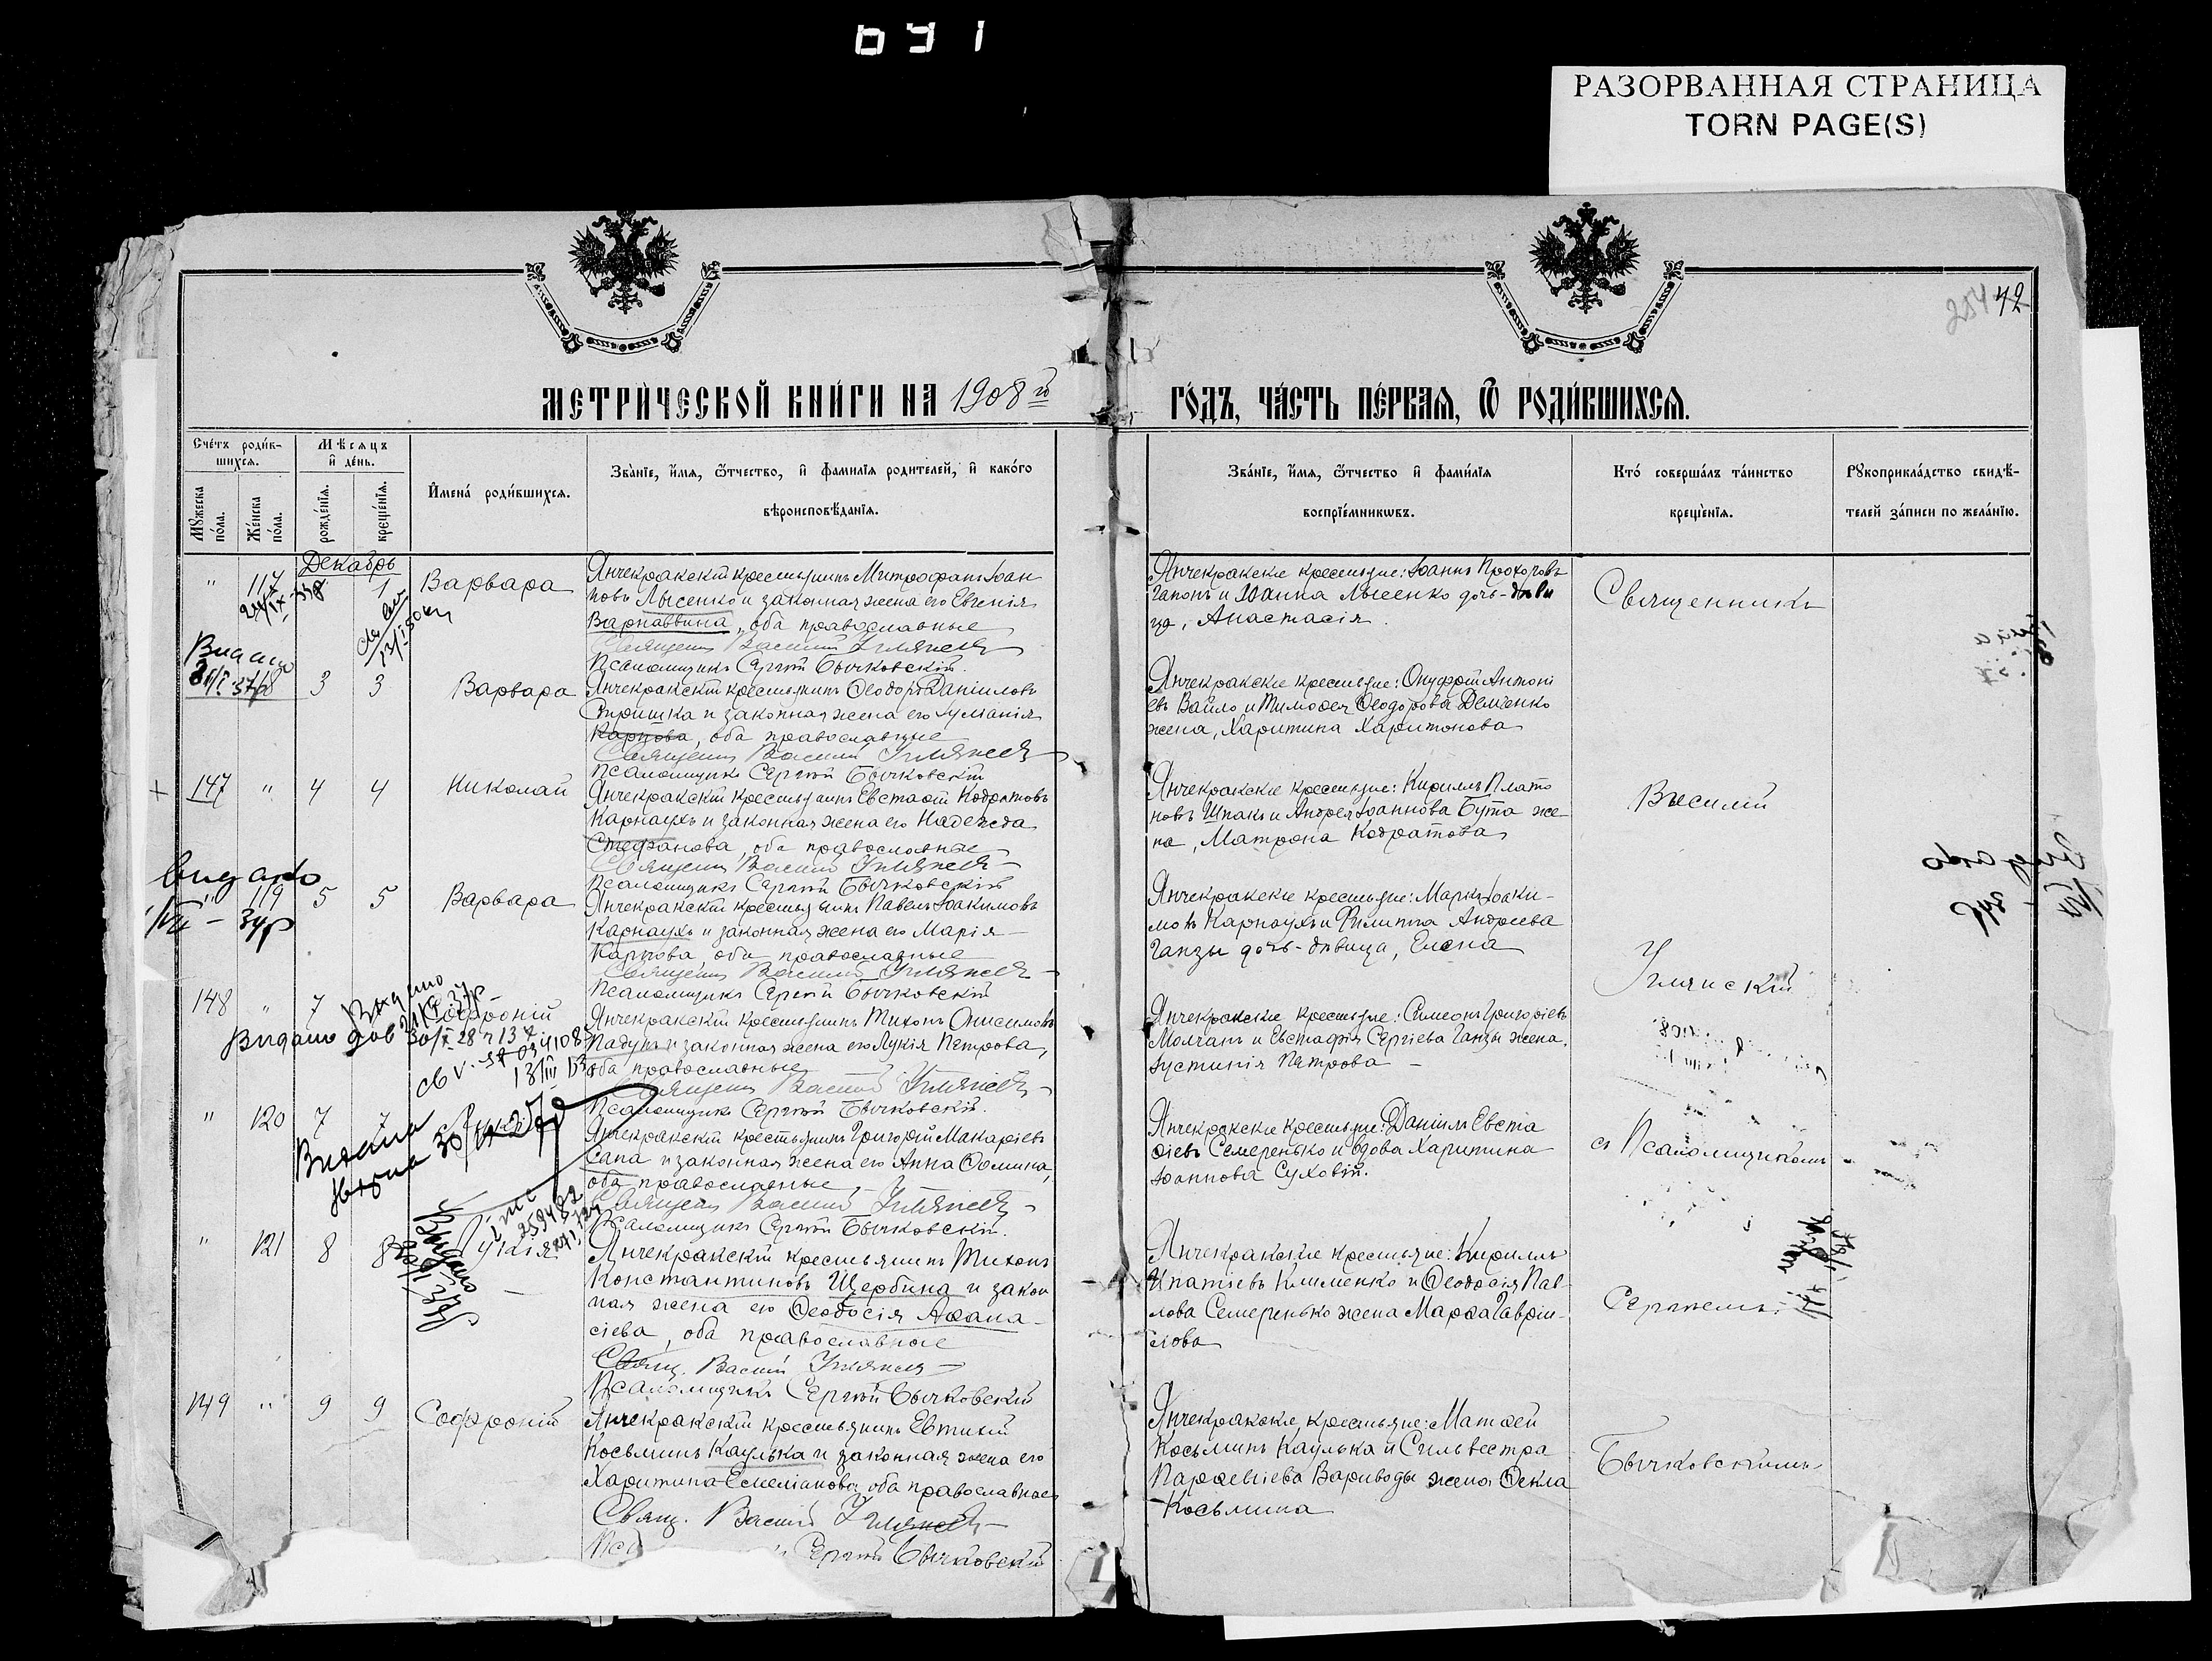 РАЗОРВАННАЯ СТРАНИЦА
TORN PAGE(S)
254 42
МЕТРИЧЕСКОЙ КНИГИ НА 1908 го
ГОДЪ, ЧАСТЬ ПЕРВАЯ, Ѿ РОДИВШИХСЯ.
Счетъ родив-
шихся.
Мѣсяцъ
и день.
Мужеска пола.
Женска пола.
рожденія.
крещенія.
Имена родившихся.
Званіе, имя, ѿтчество, и фамилія родителей, и какого
вѣроисповѣданія.
Званіе, имя, ѿтчество и фамилія
воспріемниковъ.
Кто совершалъ таинство
крещенія.
Рукоприкладство свидѣ-
телей записи по желанію.
Декабрь
" 117 1 Варвара
Янчекракскій крестьянинъ Митрофанъ Іоан
новъ Лысенко и законная жена его Евгенія
Варнаввина, оба православные
Священ Василій
Псаломщикъ Сергій Бычковскій.
Янчекракские крестьяне: Іоаннъ Прохоровъ
Гапонъ и Іоанна Лысенко дочь-дѣви
ца, Анастасія.
Священникъ
Видано
3 3 Варвара
Янчекракскій крестьянинъ Ѳеодоръ Даніиловъ
Спришка и законная жена его Іуліанія
Карпова, оба православные
Священ Василій
Псаломщикъ Сергій Бычковскій
Янчекракские крестьяне: Онуфрій Антоні
евъ Вайло и Тимоѳея Ѳеодорова Демченко
жена, Харитина Харитонова
147 " 4 4 Николай
Янчекракскій крестьянинъ Евстаѳій Кодратовъ
Карнаухъ и законная жена его Надежда
Стефанова, оба православные
Священ Василій
Псаломщикъ Сергій Бычковскій
Янчекракские крестьяне: Кириллъ Плато
новъ Шпакъ и Андрея Іоаннова Бута же
на, Матрона Кодратова
Василій
видано
" 119 5 5 Варвара
Янчекракскій крестьянинъ Павелъ Іоакимовъ
Карнаухъ и законная жена его Марія
Карпова, оба православные
Священ Василій
Псаломщикъ Сергій Бычковскій
Янчекракские крестьяне: Маркъ Іоаки-
мовъ Карнаухъ и Филиппа Андреева
Ганзы дочь-дѣвица, Елена
148 " 7 Софроній
Видано
Видано
Янчекракскій крестьянинъ Тихонъ Онисимовъ
Падунъ и законная жена его Лукія Петрова,
оба православные
Священ Василій
Псаломщикъ Сергій Бычковскій.
Янчекракские крестьяне: Симеонъ Григоріевъ
Молчанъ и Евстафія Сергіева Ганзы жена,
Іустинія Петрова
" 120 7 7
Видана
Янчекракскій крестьянинъ Григорій Макаріевъ
Сапа и законная жена его Анна Ѳомина,
оба православные
Священ Василій
Псаломщикъ Сергій Бычковскій.
Янчекракские крестьяне: Даніилъ Евста
ѳіевъ Семеренько и вдова Харитина
Іоаннова Суховій.
съ Псаломщикомъ
" 121 8 8
Видано
Янчекракскій крестьянинъ Тихонъ
Константиновъ Щербина и закон
ная жена его Ѳеодосія Аѳана-
сіева, оба православные
Свящ. Василій
Псаломщикъ Сергій Бычковскій
Янчекракские крестьяне: Кириллъ
Ипатіевъ Клименко и Ѳеодосія Пав-
лова Семеренько жена Марѳа Гаврии-
лова
Сергіемъ
149 " 9 9 Софроній
Янчекракскій крестьянинъ Евтихій
Косьминъ Каулька и законная жена его
Харитина Емеліанова, оба православные
Свящ. Василій
Сергій Бычковскій
Янчекракские крестьяне: Матѳей
Косьминъ Каулька и Сильвестра
Парѳеніева Вариводы жена Ѳекла
Косьмина
Бычковскимъ